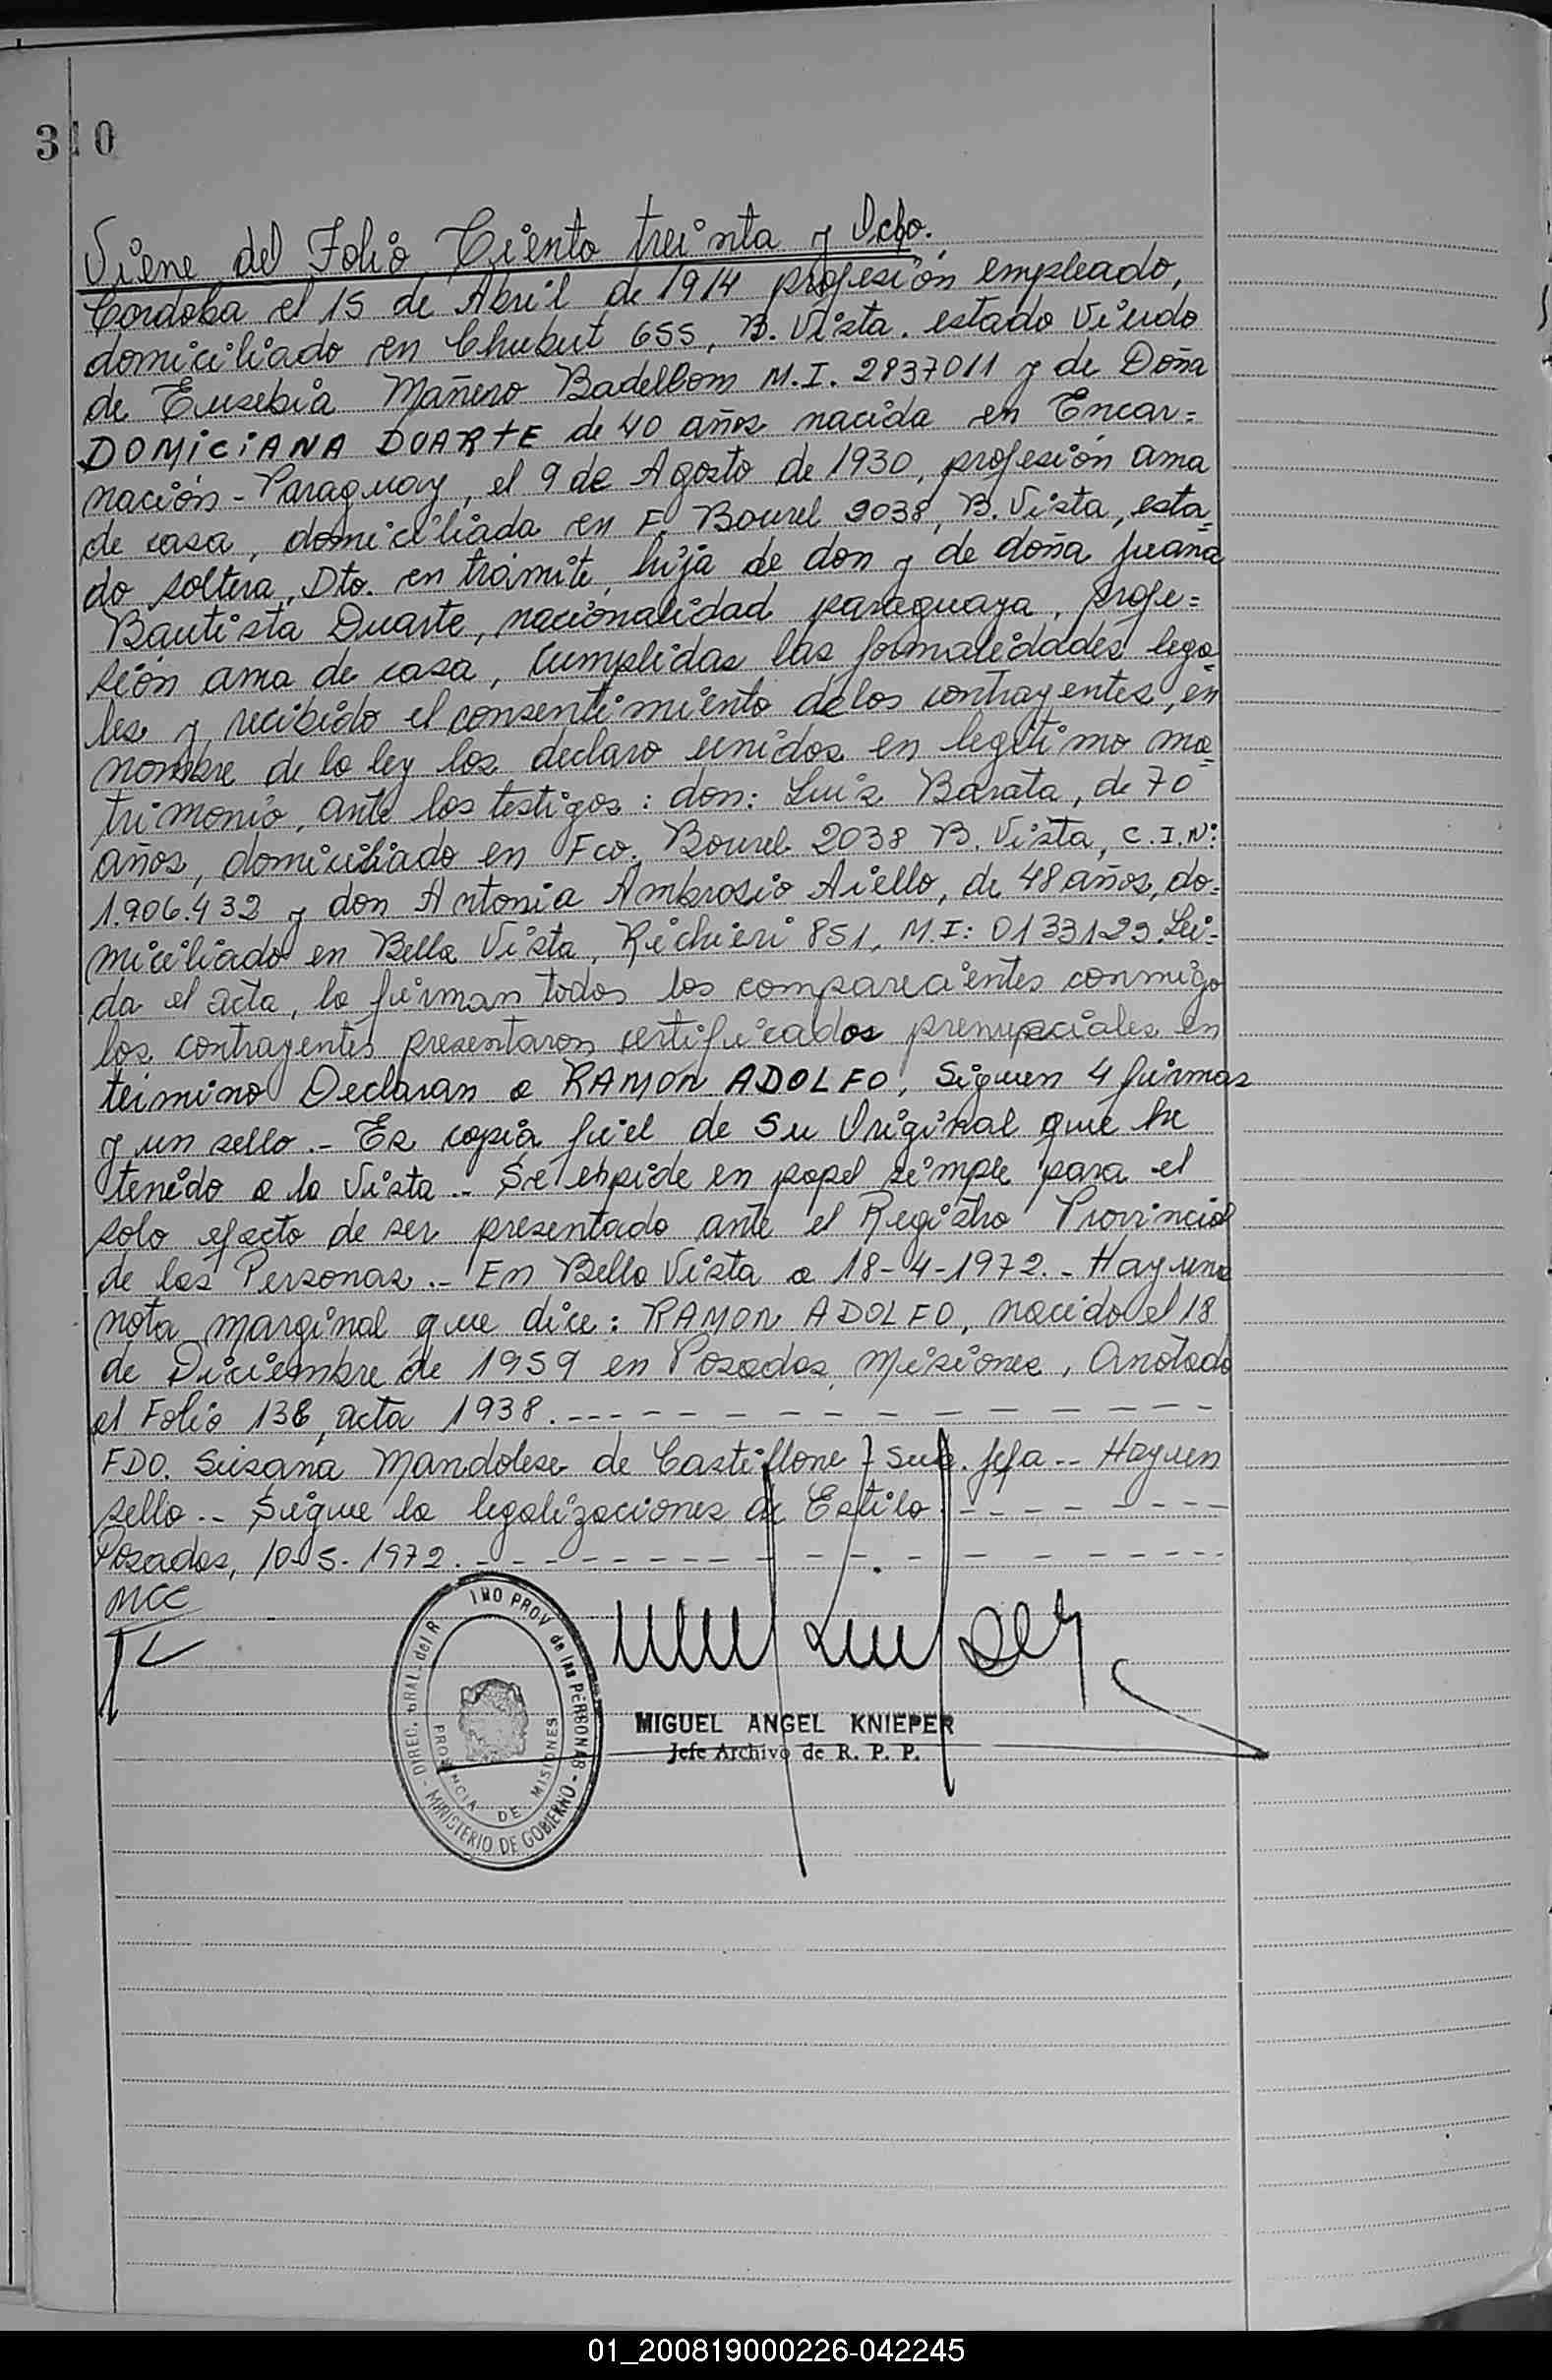 310
Viene del Folio Ciento treinta y Ocho.
Cordoba el 15 de Abril de 1914 profesión empleado,
domiciliado en Chubut 655, B. Vista. estado Viudo
de Eusebia Mañero Badelbom M.I. 2837011 y de Doña
DOMICIANA DUARTE de 40 años nacida en Encar=
nación - Paraguay, el 9 de Agosto de 1930, profesión ama
de casa, domiciliada en F. Bourel 2038, B. Vista, esta=
do soltera, Dto. en trámite, hija de don y de doña Juana
Bautista Duarte, nacionalidad paraguaya, profe=
sión ama de casa, Cumplidas las formalidades lega=
les y recibido el consentimiento de los contrayentes, en
nombre de la ley los declaro unidos en legítimo ma=
trimonio, ante los testigos: don: Luis Barata, de 70
años, domiciliado en Fco. Bourel 2038 B. Vista, C.I.N:
1.906.432 y don Antonia Ambrosio Aiello, de 48 años, do=
miciliado en Bella Vista, Richieri 851, M.I: 0133123. Lei=
da el acta, la firman todos los comparecientes conmigo
los contrayentes presentaron certificados prenupciales en
término Declaran a RAMON ADOLFO, Siguen 4 firmas
y un sello.- Es copia fiel de su Original que he
tenido a la Vista.- Se expide en papel simple para el
solo efecto de ser presentado ante el Registro Provincial
de las Personas.- En Bella Vista a 18-4-1972.- Hay una
nota marginal que dice: RAMON ADOLFO, nacido el 18
de Diciembre de 1959 en Posadas, Misiones, Anotado
al Folio 138, acta 1938.- - - - - - - - - - - - - - -
FDO. Susana Mandolese de Castiflone - Sub. Jefa -- Hay un
sello.- Sigue la legalizaciones de Estilo.- - - - - - -
Posadas, 10-5-1972.- - - - - - - - - - - - - - - -
MCC
DIREC. GRAL. del R INO PROV de las PERSONAS - MINISTERIO DE GOBIERNO -
PROVINCIA DE MISIONES
MIGUEL ANGEL KNIEPER
Jefe Archivo de R. P. P.
01_200819000226-042245